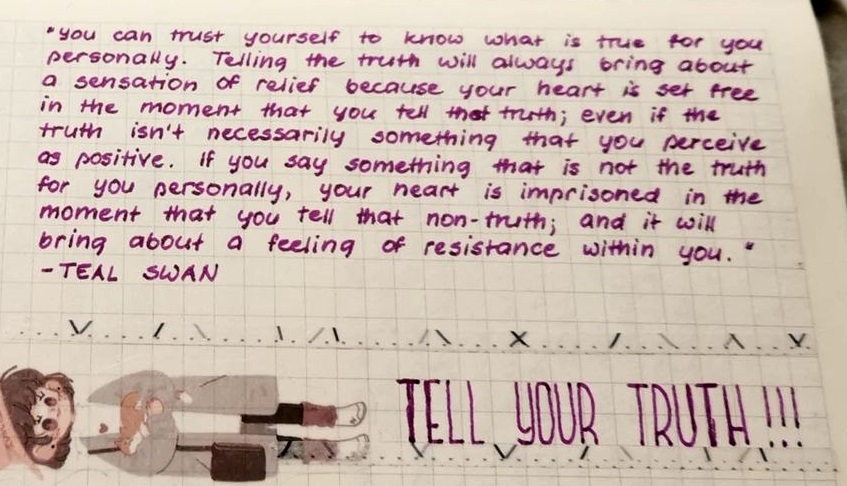 "you can trust yourself to know what is true for you
personally. Telling the truth will always bring about
a sensation of relief because your heart is set free
in the moment that you tell that truth; even if the
truth isn't necessarily something that you perceive
as positive. If you say something that is not the truth
for you personally, your heart is imprisoned in the
moment that you tell that non-truth; and it will
bring about a feeling of resistance within you."
-TEAL SWAN
TELL YOUR TRUTH!!!